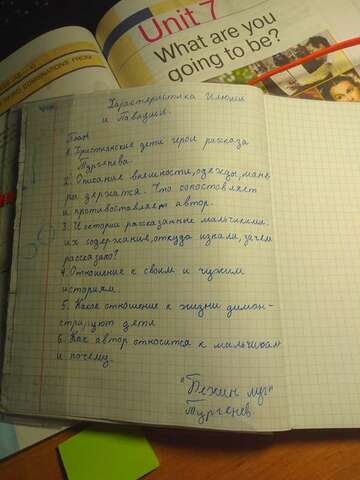 Unit 7
What are you
going to be?
Характеристика Илюши
и Павлуши.
План
1. Крестьянские дети герои рассказа
Тургенева.
2. Описание внешности, одежды, мане
ры держатся. Что сопоставляет
и противоставляет автор.
3. Истории рассказанные мальчиками:
их содержание, откуда узнали, зачем
рассказано?
4. Отношение к своим и чужим
историям.
5. Какое отношение к жизни демон-
стрируют дети
6. Как автор относится к мальчикам
и почему.
"Бежин луг"
Тургенев.